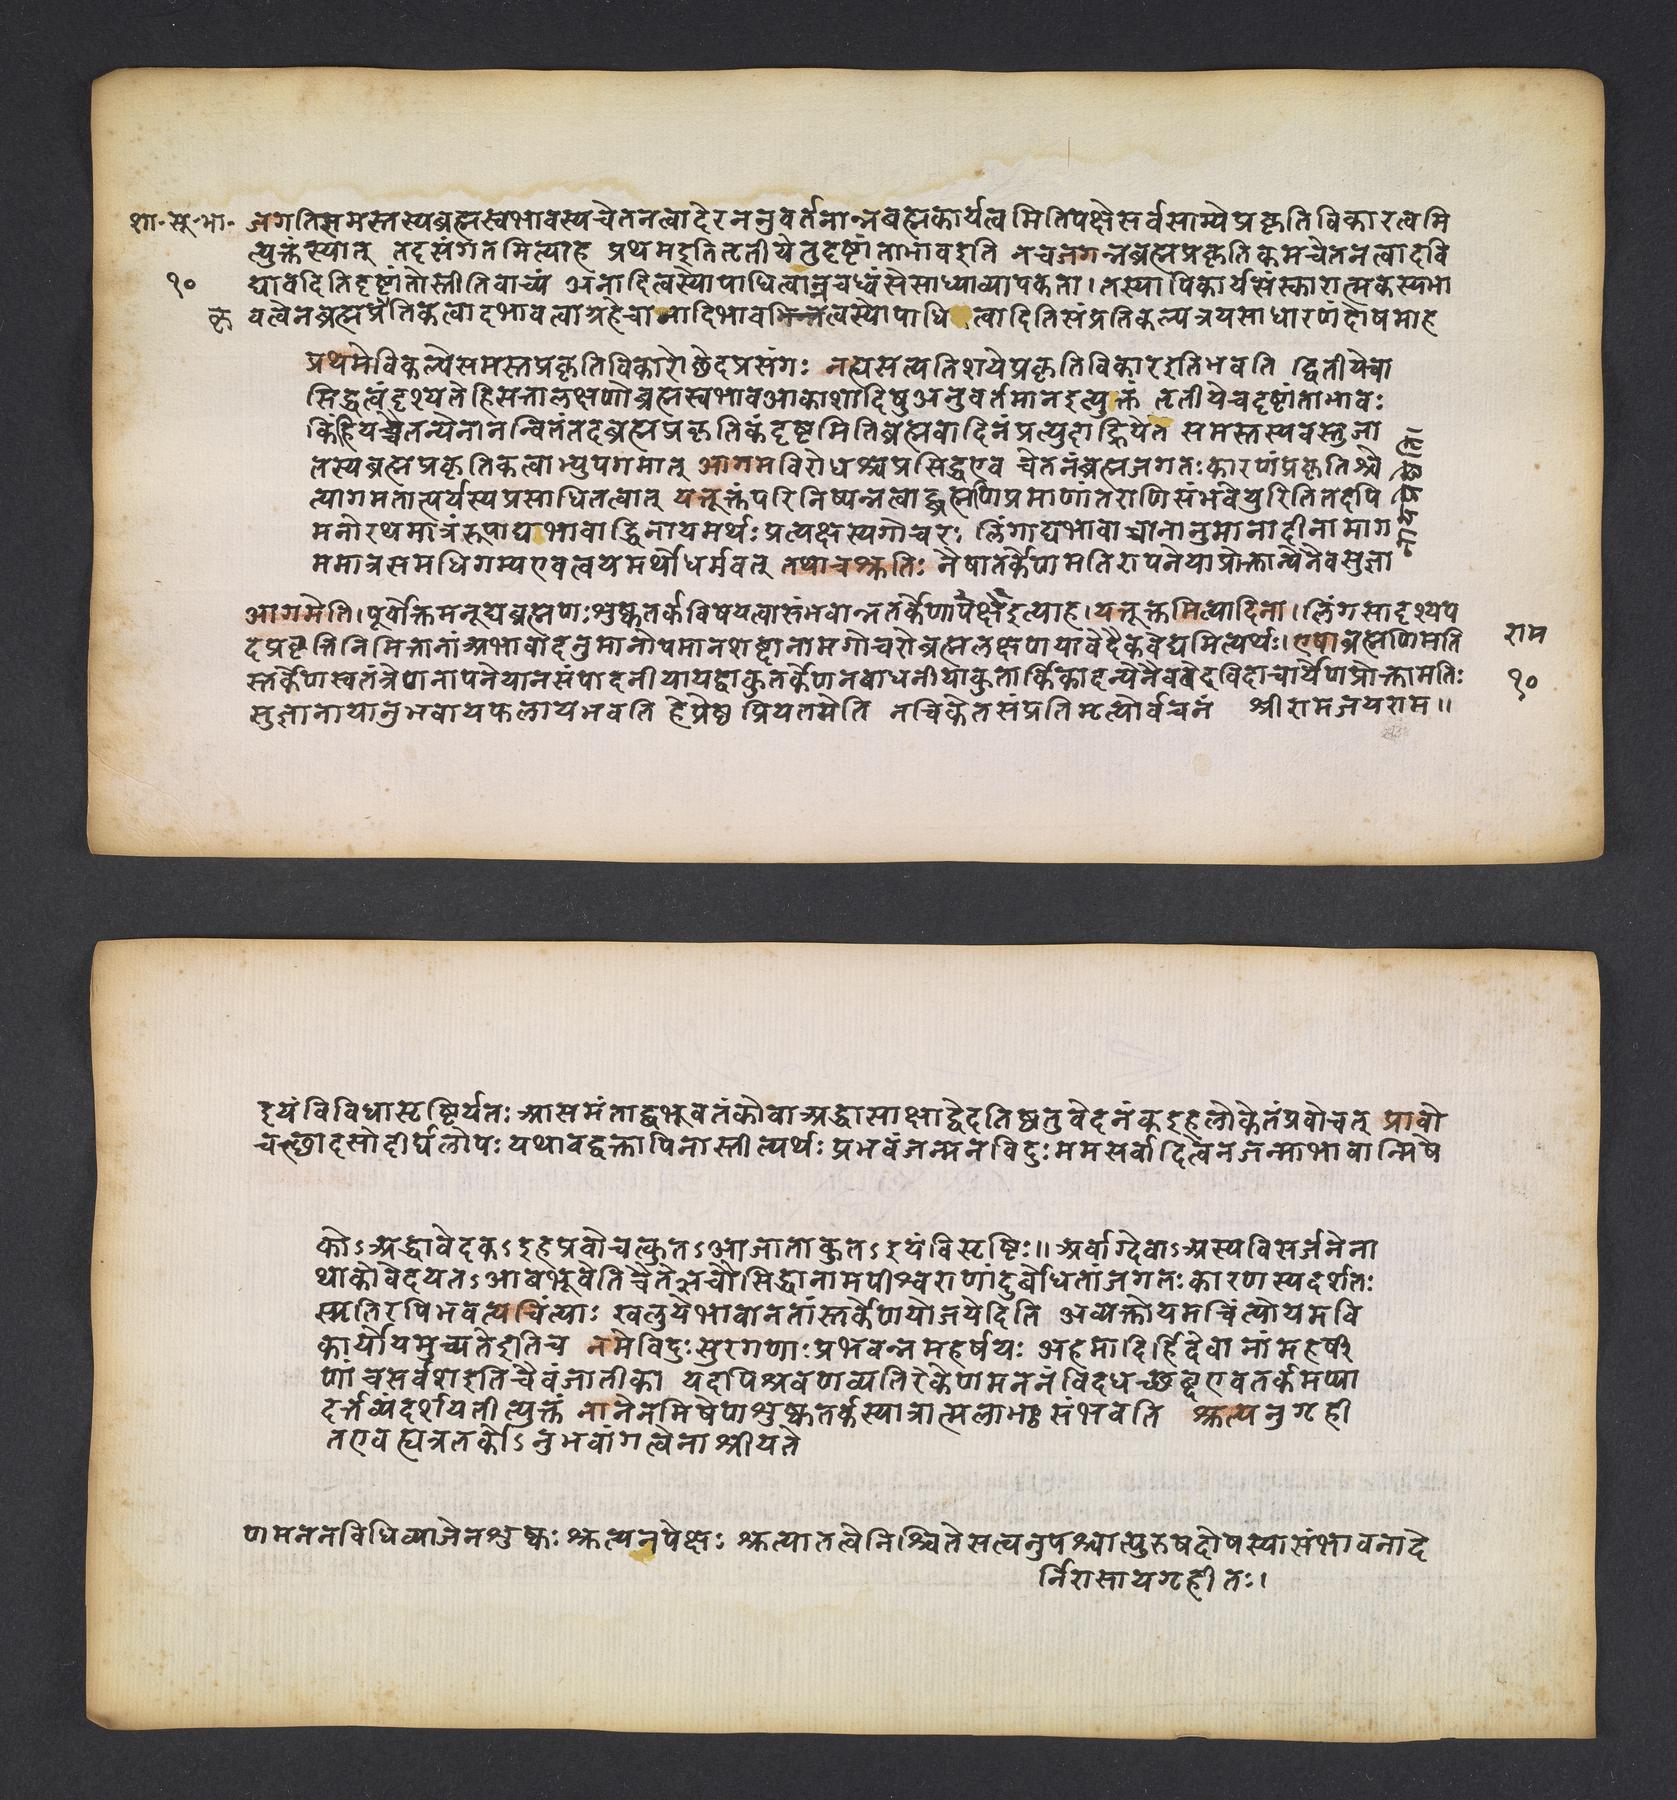 शा॰सू॰भा॰ जगतिसमस्तस्यब्रह्मस्वभावस्यचेतनत्वादेरननुवर्तनान्नब्रह्मकार्यत्वमितिपक्षेसर्वसाम्येप्रकृतिविकारत्वमि
त्युक्तंस्यात् तदसंगतमित्याह प्रथमइतितृतीयेतुदृष्टांताभावइति नचजगन्नब्रह्मप्रकृतिकमचेतनत्वादवि
१० द्यावदितिदृष्टांतोस्तीतिवाच्यं अनादित्वस्योपाधित्वान्नचध्वंसेसाध्याव्यापकता। तस्यापिकार्यसंस्कारात्मकस्यभा
कृ वत्वेनब्रह्मप्रतिकत्वादभावत्वाग्रहेचानादिभावभिन्नत्वस्योपाधित्वादितिसंप्रतिकल्पत्रयसाधारणंदोषमाह
प्रथमेविकल्पेसमस्तप्रकृतिविकारोछेदप्रसंगः नत्यसत्यतिशयेप्रकृतिविकारइतिभवति द्वितीयेचा
सिद्धत्वंदृश्यतेहिसत्तालक्षणोब्रह्मस्वभावआकाशादिषुअनुवर्तमानइत्युक्तं तृतीयेचदृष्टांताभावः
किंहियच्चैतन्येनानन्वितंतदब्रह्मप्रकृतिकंदृष्टमितिब्रह्मवादिनंप्रत्युदाह्रियेत समस्तस्यवस्तुजा
तस्यब्रह्मप्रकृतिकत्वाभ्युपगमात् आगमविरोधश्चप्रसिद्धएव चेतनंब्रह्मजगतःकारणंप्रकृतिश्चे
त्यागमतात्पर्यस्यप्रसाधितत्वात् यत्तूक्तंपरिनिष्पन्नत्वाद्ब्रह्मणिप्रमाणांतराणिसंभवेयुरितितदपि
मनोरथमात्रंरूपाद्यभावाद्धिनायमर्थःप्रत्यक्षस्यगोचरः लिंगाद्यभावाच्चानानुमानादीनामाग
ममात्रसमधिगम्यएवत्वयमर्थोधर्मवत् तथाचश्रुतिः नैषातर्केणामतिरापनेयाप्रोक्तान्येनैवसुज्ञा
आगमेति।पूर्वोक्तमनूद्यब्रह्मणःशुष्कतर्कविषयत्वासंभवान्नतर्केणापेक्षइत्याह।यत्तूक्तमित्यादिना।लिंगसादृश्यप
दप्रवृत्तिनिमित्तानांअभावादनुमानोपमानशब्दानामगोचरोब्रह्मलक्षणयावेदैकवेद्यमित्यर्थः।एषाब्रह्मणिमति राम
स्तर्केणस्वतंत्रेणनापनेयानसंपादनीयायद्वाकुतर्केणनबाधनीयाकुतार्किकादन्येनैववेदविदाचार्येणप्रोक्तामतिः १०
सुज्ञानायानुभवायफलायभवति हेप्रेष्ठप्रियतमेति नचिकेतसंप्रतिमृत्योर्वचनं श्रीरामजयराम॥
इयंविविधासृष्टिर्यतःआसमंताद्बभूवतंकोवाअद्धासाक्षाद्वेदतिष्ठतुवेदनंकइहलोकेतंप्रवोचत् प्रावो
चच्छांदसोदीर्घलोपःयथावद्वक्तापिनास्तीत्यर्थःप्रभवंजन्मनविदुःममसर्वादित्वेनजन्माभावान्मिषे
कोऽअद्धावेदकऽइहप्रवोचत्कुतऽआजाताकुतऽइयंविसृष्टिः॥अर्वाग्देवाऽअस्यविसर्जनेना
थाकोवेदयतऽआबभूवेति चैतेऋचौसिद्धानामपीश्वराणांदुर्बोधितांजगतःकारणस्यदर्शतः
स्मृतिरपिभवत्यचिंत्याः खलुयेभावानतांस्तर्केणयोजयेदिति अव्यक्तोयमचिंत्योयमवि
कार्योयमुच्यतेइतिच नमेविदुःसुरगणाःप्रभवंनमहर्षयः अहमादिर्हिदेवानांमहर्षी
णांचसर्वशइतिचैवंजातीका यदपिश्रवणव्यतिरेकेणमननंविदधच्छब्दएवतर्कमप्या
दर्त्तव्यंदर्शयतीत्युक्तं नानेनमिषेणशुष्कतर्कस्यात्रात्मलाभः संभवति श्रुत्यनुगृही
तएवह्यत्रतर्कोऽनुभवांगत्वेनाश्रीयते
णमननविधिव्याजेनशुष्कःश्रुत्यनपेक्षः श्रुत्यातत्वेनिश्चितेसत्यनुपश्चात्पुरुषदोषस्यासंभावनादे
र्निरासायगृहीतः।